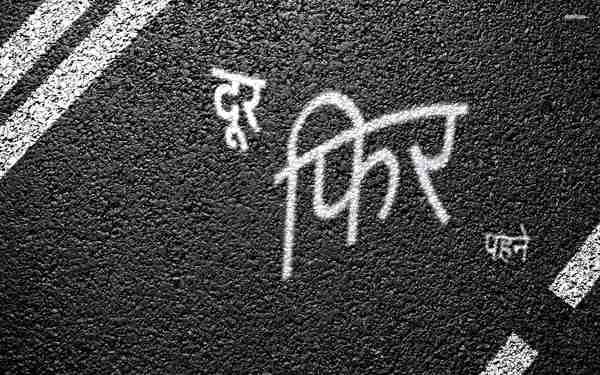 दूर
फिर
पहने